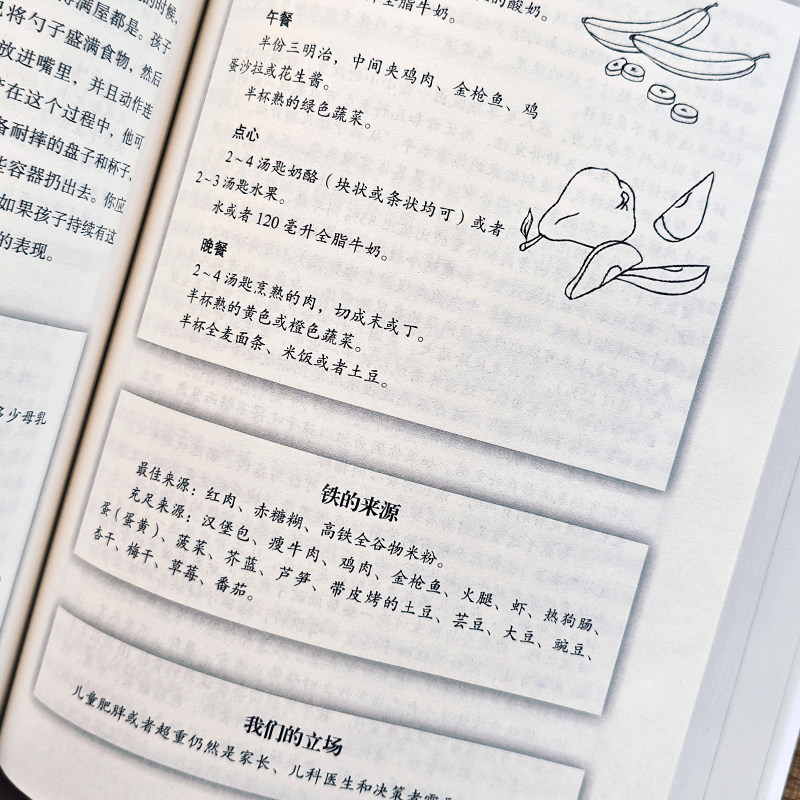 的时候,
得满屋都是。孩子
将勺子盛满食物,然后
放进嘴里,并且动作连
在这个过程中,他可
备耐摔的盘子和杯子,
些容器扔出去。你应
如果孩子持续有这
的表现。
少母乳
的酸奶。
全脂牛奶。
午餐
半份三明治,中间夹鸡肉、金枪鱼、鸡
蛋沙拉或花生酱。
半杯熟的绿色蔬菜。
点心
2~4汤匙奶酪(块状或条状均可)或者
2~3汤匙水果。
水或者120毫升全脂牛奶。
晚餐
2~4汤匙烹熟的肉,切成末或丁。
半杯熟的黄色或橙色蔬菜。
半杯全麦面条、米饭或者土豆。
铁的来源
最佳来源:红肉、赤糖糊、高铁全谷物米粉。
充足来源:汉堡包、瘦牛肉、鸡肉、金枪鱼、火腿、虾、热狗肠、
蛋(蛋黄)、菠菜、芥蓝、芦笋、带皮烤的土豆、芸豆、大豆、豌豆、
杏干、梅干、草莓、番茄。
我们的立场
儿童肥胖或者超重仍然是家长、儿科医生和决策者需